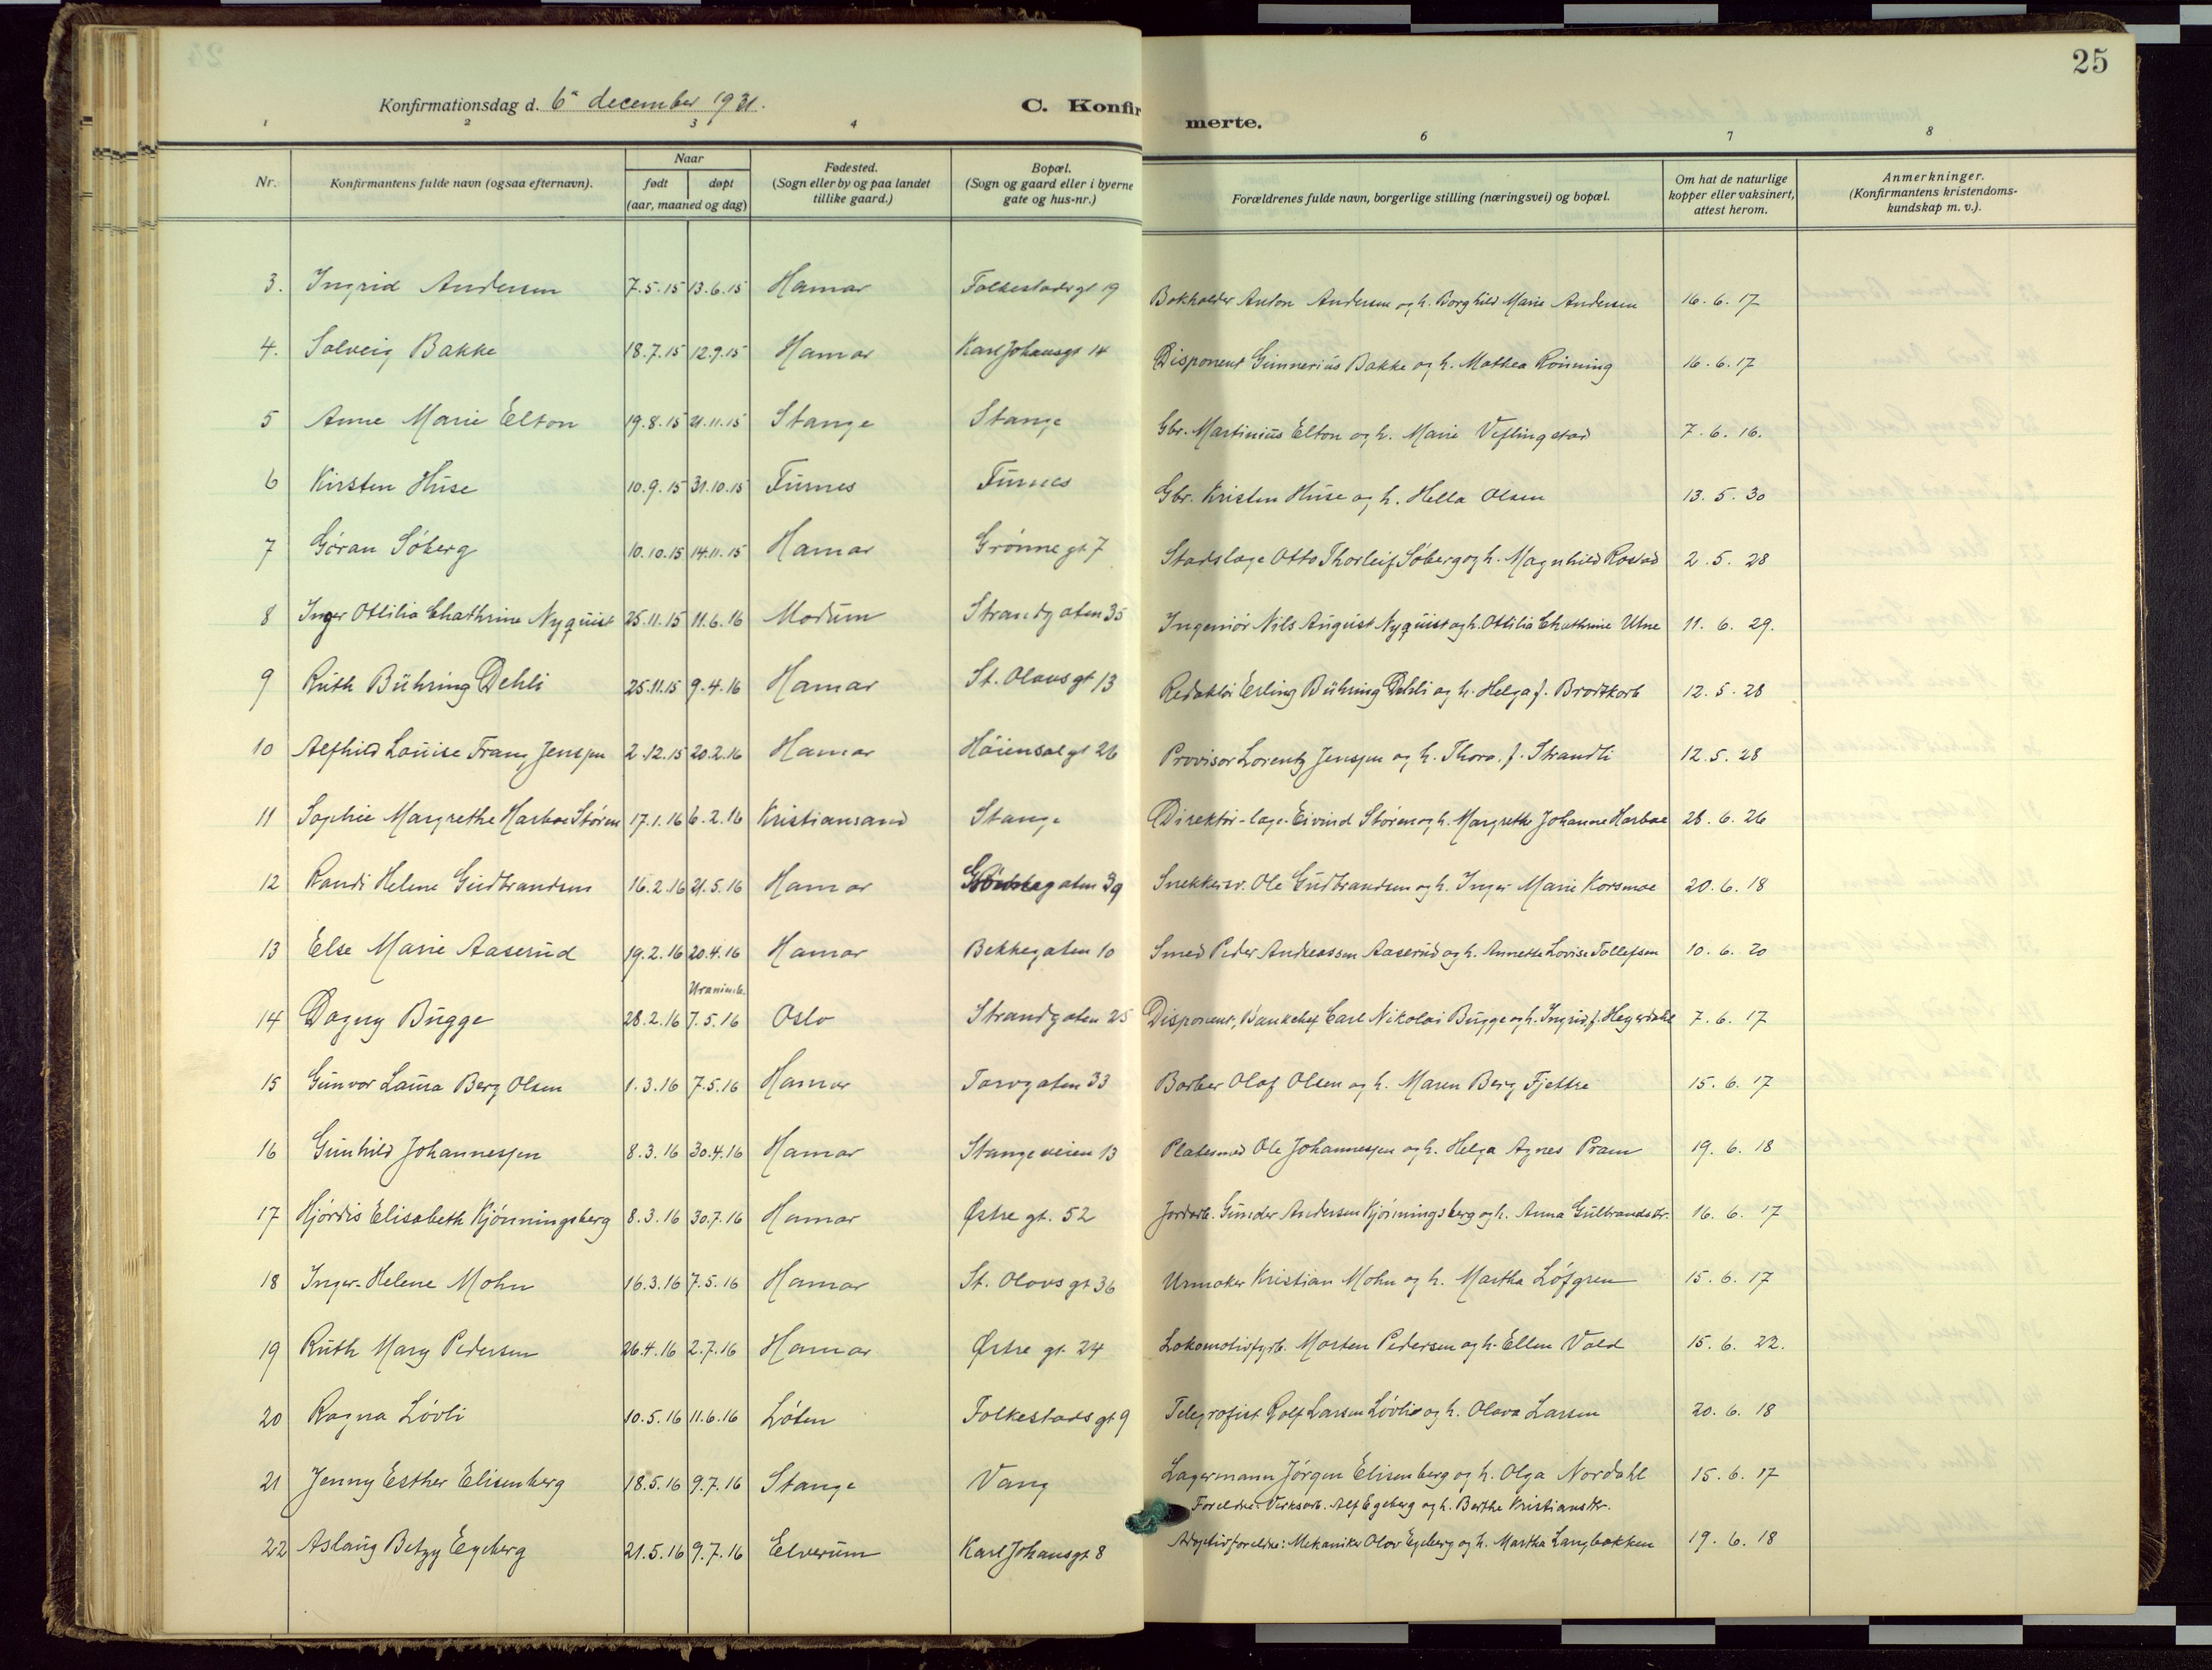 25
Konfirmationsdag d. 6te december 1931.
C. Konfirmerte.
1 2 3 4 6 7 8
Nr. Konfirmantens fulde navn (ogsaa efternavn). Naar født døpt (aar, maaned og dag) Fødested. (Sogn eller by og paa landet tillike gaard.) Bopæl. (Sogn og gaard eller i byerne gate og hus-nr.) Forældrenes fulde navn, borgerlige stilling (næringsvei) og bopæl. Om hat de naturlige kopper eller vaksinert, attest herom. Anmerkninger. (Konfirmantens kristendoms-kundskap m. v.).
3. Ingrid Andersen 7.5.15 13.6.15 Hamar Folkestadsgt 19 Bokholder Anton Andersen og h. Borghild Marie Andersen 16.6.17
4. Solveig Bakke 18.7.15 12.9.15 Hamar Karl Johansgt 14 Disponent Gunnerius Bakke og h. Mathea Rønning 16.6.17
5 Anne Marie Elton 19.8.15 21.11.15 Stange Stange Gbr. Martinius Elton og h. Marie Veflingstad 7.6.16.
6 Kirsten Huse 10.9.15 31.10.15 Furnes Furnes Gbr. Kristen Huse og h. Hella Olsen 13.5.30
7 Gøran Søberg 10.10.15 14.11.15 Hamar Grønnegt 7 Stadslæge Otto Thorleif Søberg og h. Magnhild Rostad 2.5.28
8 Inger Ottilia Chathrine Nyquist 25.11.15 11.6.16 Modum Strandgaten 35 Ingeniør Nils August Nyquist og h. Ottilia Chathrine Utne 11.6.29.
9 Ruth Bühring Dehli 25.11.15 9.4.16 Hamar St. Olavsgt 13 Redaktør Erling Bühring Dehli og h. Helga f. Brodtkorb 12.5.28
10 Alfhild Louise Franz Jenssen 2.12.15 20.2.16 Hamar Høiensalgt 26 Provisor Lorentz Jenssen og h. Thora f. Strandli 12.5.28
11 Sophie Margrethe Harboe Støren 17.1.16 6.2.16 Kristiansand Stange Direktør-læge Eivind Støren og h. Margrethe Johanne Harboe 28.6.26
12 Randi Helene Gudbrandsen 16.2.16 21.5.16 Hamar gaten 39 Snekkersv. Ole Gudbrandsen og h. Inger Marie Korsmoe 20.6.18
13 Else Marie Aaserud 19.2.16 20.4.16 Hamar Bekkegaten 10 Smed Peder Andreassen Aaserud og h. Annette Lovise Tollefsen 10.6.20
Uranienb.
14 Dagny Bugge 28.2.16 7.5.16 Oslo Strandgaten 25 Disponent, Bankchef Carl Nikolai Bugge og h. Ingrid f. Heyerdahl 7.6.17
15 Gunvor Laura Berg Olsen 1.3.16 7.5.16 Hamar Torvgaten 33 Barber Olaf Olsen og h. Maren Berg Fjettre 15.6.17
16 Gunhild Johannessen 8.3.16 30.4.16 Hamar Stangeveien 13 Platesmed Ole Johannessen og h. Helga Agnes Pram 19.6.18
17 Hjørdis Elisabeth Kjønningsberg 8.3.16 30.7.16 Hamar Østre gt. 52 Jordarb. Gunder Andersen Kjønningsberg og h. Anna Gulbrandsdtr. 16.6.17
18 Inger-Helene Mohn 16.3.16 7.5.16 Hamar St. Olavsgt 36 Urmaker Kristian Mohn og h. Martha Løfgren 15.6.17
19 Ruth Mary Pedersen 26.4.16 2.7.16 Hamar Østre gt. 24 Lokomotivfyrb. Morten Pedersen og h. Ellen Vold 15.6.22.
20 Ragna Løvli 10.5.16 11.6.16 Løten Folkestadsgt 9 Telegrafist Rolf Larsen Løvli og h. Olava Larsen 20.6.18
21 Jenny Esther Elisenberg 18.5.16 9.7.16 Stange Vang Lagermann Jørgen Elisenberg og h. Olga Nordahl 15.6.17
Foreldre: Verksarb. Alf Egeberg og h. Berthe Kristiansdtr.
22 Aslaug Betzy Egeberg 21.5.16 9.7.16 Elverum Karl Johansgt 8 Adoptivforeldre: Mekaniker Olav Egeberg og h. Martha Langbakken 19.6.18